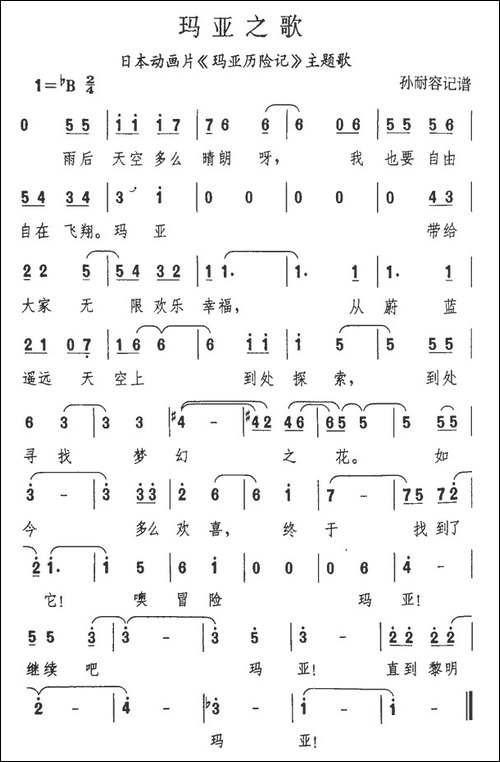 玛亚之歌
日本动画片《玛亚历险记》主题歌
1=♭B 2/4 孙耐容记谱
0 5 5 | i i i 7 | 7 6 6 | 6 0 6 | 5 5 5 6 |
雨后 天空多么 晴朗 呀, 我 也要自由
5 4 3 4 | 3 i | 0 0 | 0 0 | 0 4 3 |
自在飞翔。玛 亚 带给
2 2 5 | 5 4 3 2 | 1 1· | 1· 1 | 1· 1 |
大家 无 限欢乐 幸福, 从 蔚 蓝
2 1 0 7 | 1 6 6 | 6 i i | i 5 | 5 5 5 |
遥远 天 空上 到处 探 索, 到处
6 3 | 3 3 | #4 - | #4 2 4 6 | 6 5 5 | 5 5 5 |
寻 找 梦 幻 之 花。 如
3 - | 3 3 3 | 2 6 | 6 i | 7 - | 7 5 7 2 |
今 多么 欢 喜, 终 于 找到了
2 i· | i 5 | 6 i | 0 0 | 0 6 | 4 - |
它! 噢 冒 险 玛 亚!
5 5 3 | 3 3 | 3 - | 3 5 | 3 - | 2 2 2 2 |
继续 吧 玛 亚! 直到黎明
2 - | 4 - | ♭3 - | i - | i - ‖
玛 亚!